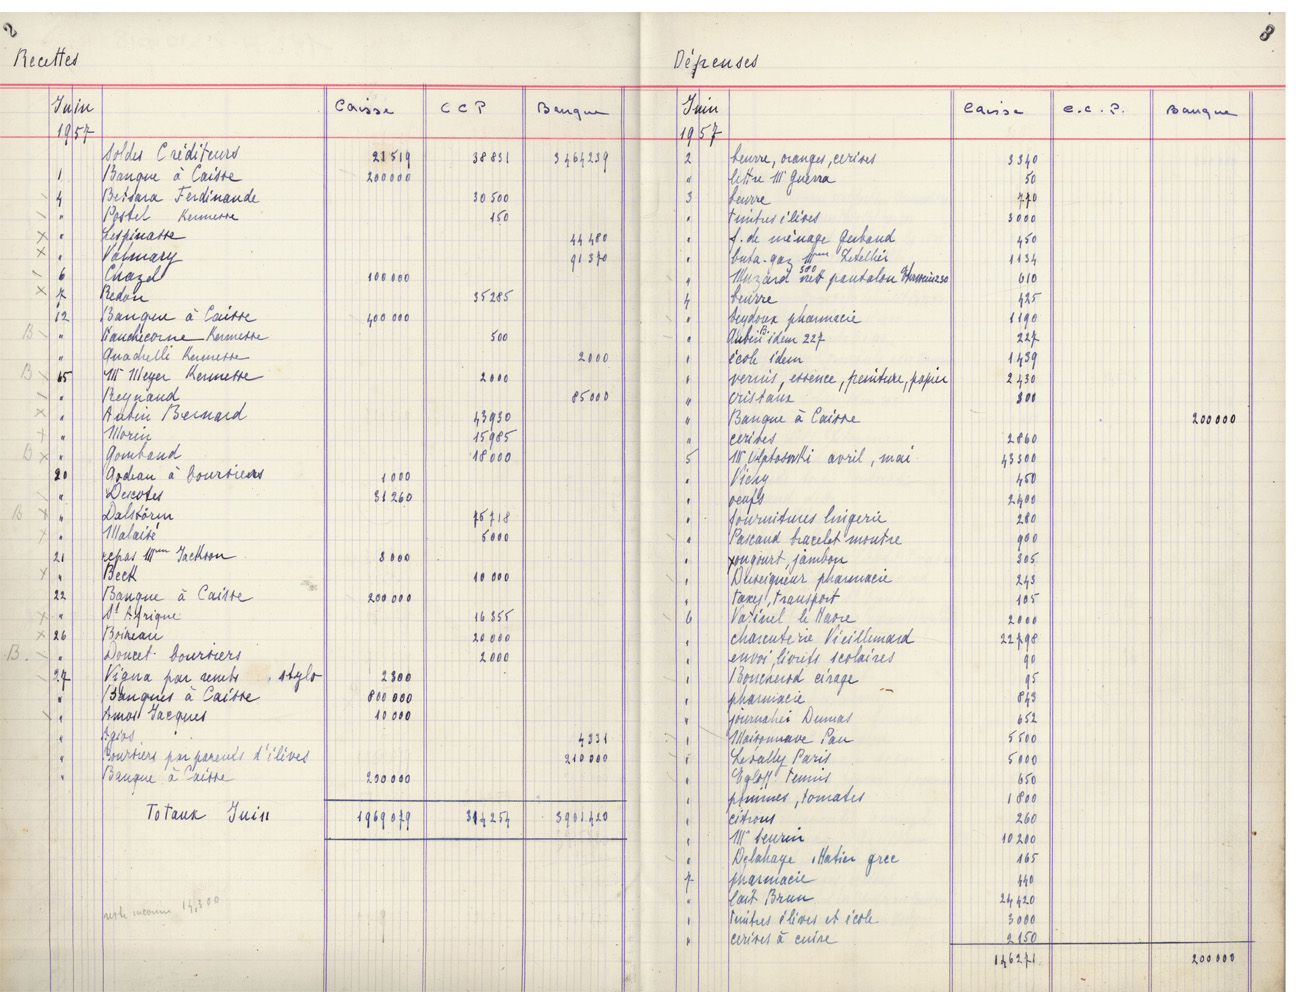 2
Recettes
Juin 1957 Caisse CCP Banque
Soldes Créditeurs 21519 38831 3464239
1 Banque à Caisse 200000
4 Bessara Ferdinande 30500
" Postel Kermesse 150
" Lespinasse 44480
" Valmary 91370
6 Chazel 100000
7 Redon 35285
12 Banque à Caisse 400000
" Kermesse 500
" Kermesse 2000
15 Mr Meyer Kermesse 2000
" Reynaud 85000
" Aubin Bernard 43930
" Morin 15985
" Gombaud 18000
20 Godeau à boursiers 1000
" Descotes 31260
" 75718
" Malaisé 5000
21 repas Mme Jackson 3000
" Beck 10000
22 Banque à Caisse 200000
" St Afrique 16355
26 Boireau 20000
" Doucet boursiers 2000
27 Vigna par remb. stylo 2300
" Banques à Caisse 800000
" Amos Jacques 10000
" Agios 4331
" Boursiers par parents d'élèves 210000
" Banque à Caisse 200000
Totaux Juin 1969079 314254 3901420
14,300
8
Dépenses
Juin 1957 Caisse C.C.P. Banque
2 beurre, oranges, cerises 3340
" lettre Mr Guerra 50
3 beurre 770
" timbres élèves 3000
" f. de ménage Gerbaud 450
" buta-gaz Mme Letellier 1134
" Muzard 380 pantalon 230 610
4 beurre 425
" beydoux pharmacie 1190
" Aubin B. idem 227 227
" école idem 1439
" vernis, essence, peinture, papier 2430
" cristaux 300
" Banque à Caisse 200000
" cerises 2860
5 Mr avril, mai 43500
" Vichy 450
" oeufs 2400
" fournitures lingerie 280
" Pascaud bracelet montre 900
" yougourt, jambon 305
" pharmacie 243
" taxes, transport 105
6 Vatinel le Havre 2000
" charcuterie Vieillemard 22798
" envoi livrets scolaires 90
" cirage 95
" pharmacie 843
" Dumas 652
" Maisonnave Pau 5500
" Paris 5000
" Egloff tennis 650
" pommes, tomates 1800
" citrons 260
" Mr beurin 10200
" Delahaye Hatier grec 165
7 pharmacie 440
" lait Brun 24420
" timbres élèves et école 3000
" cerises à cuire 2150
146271 200000